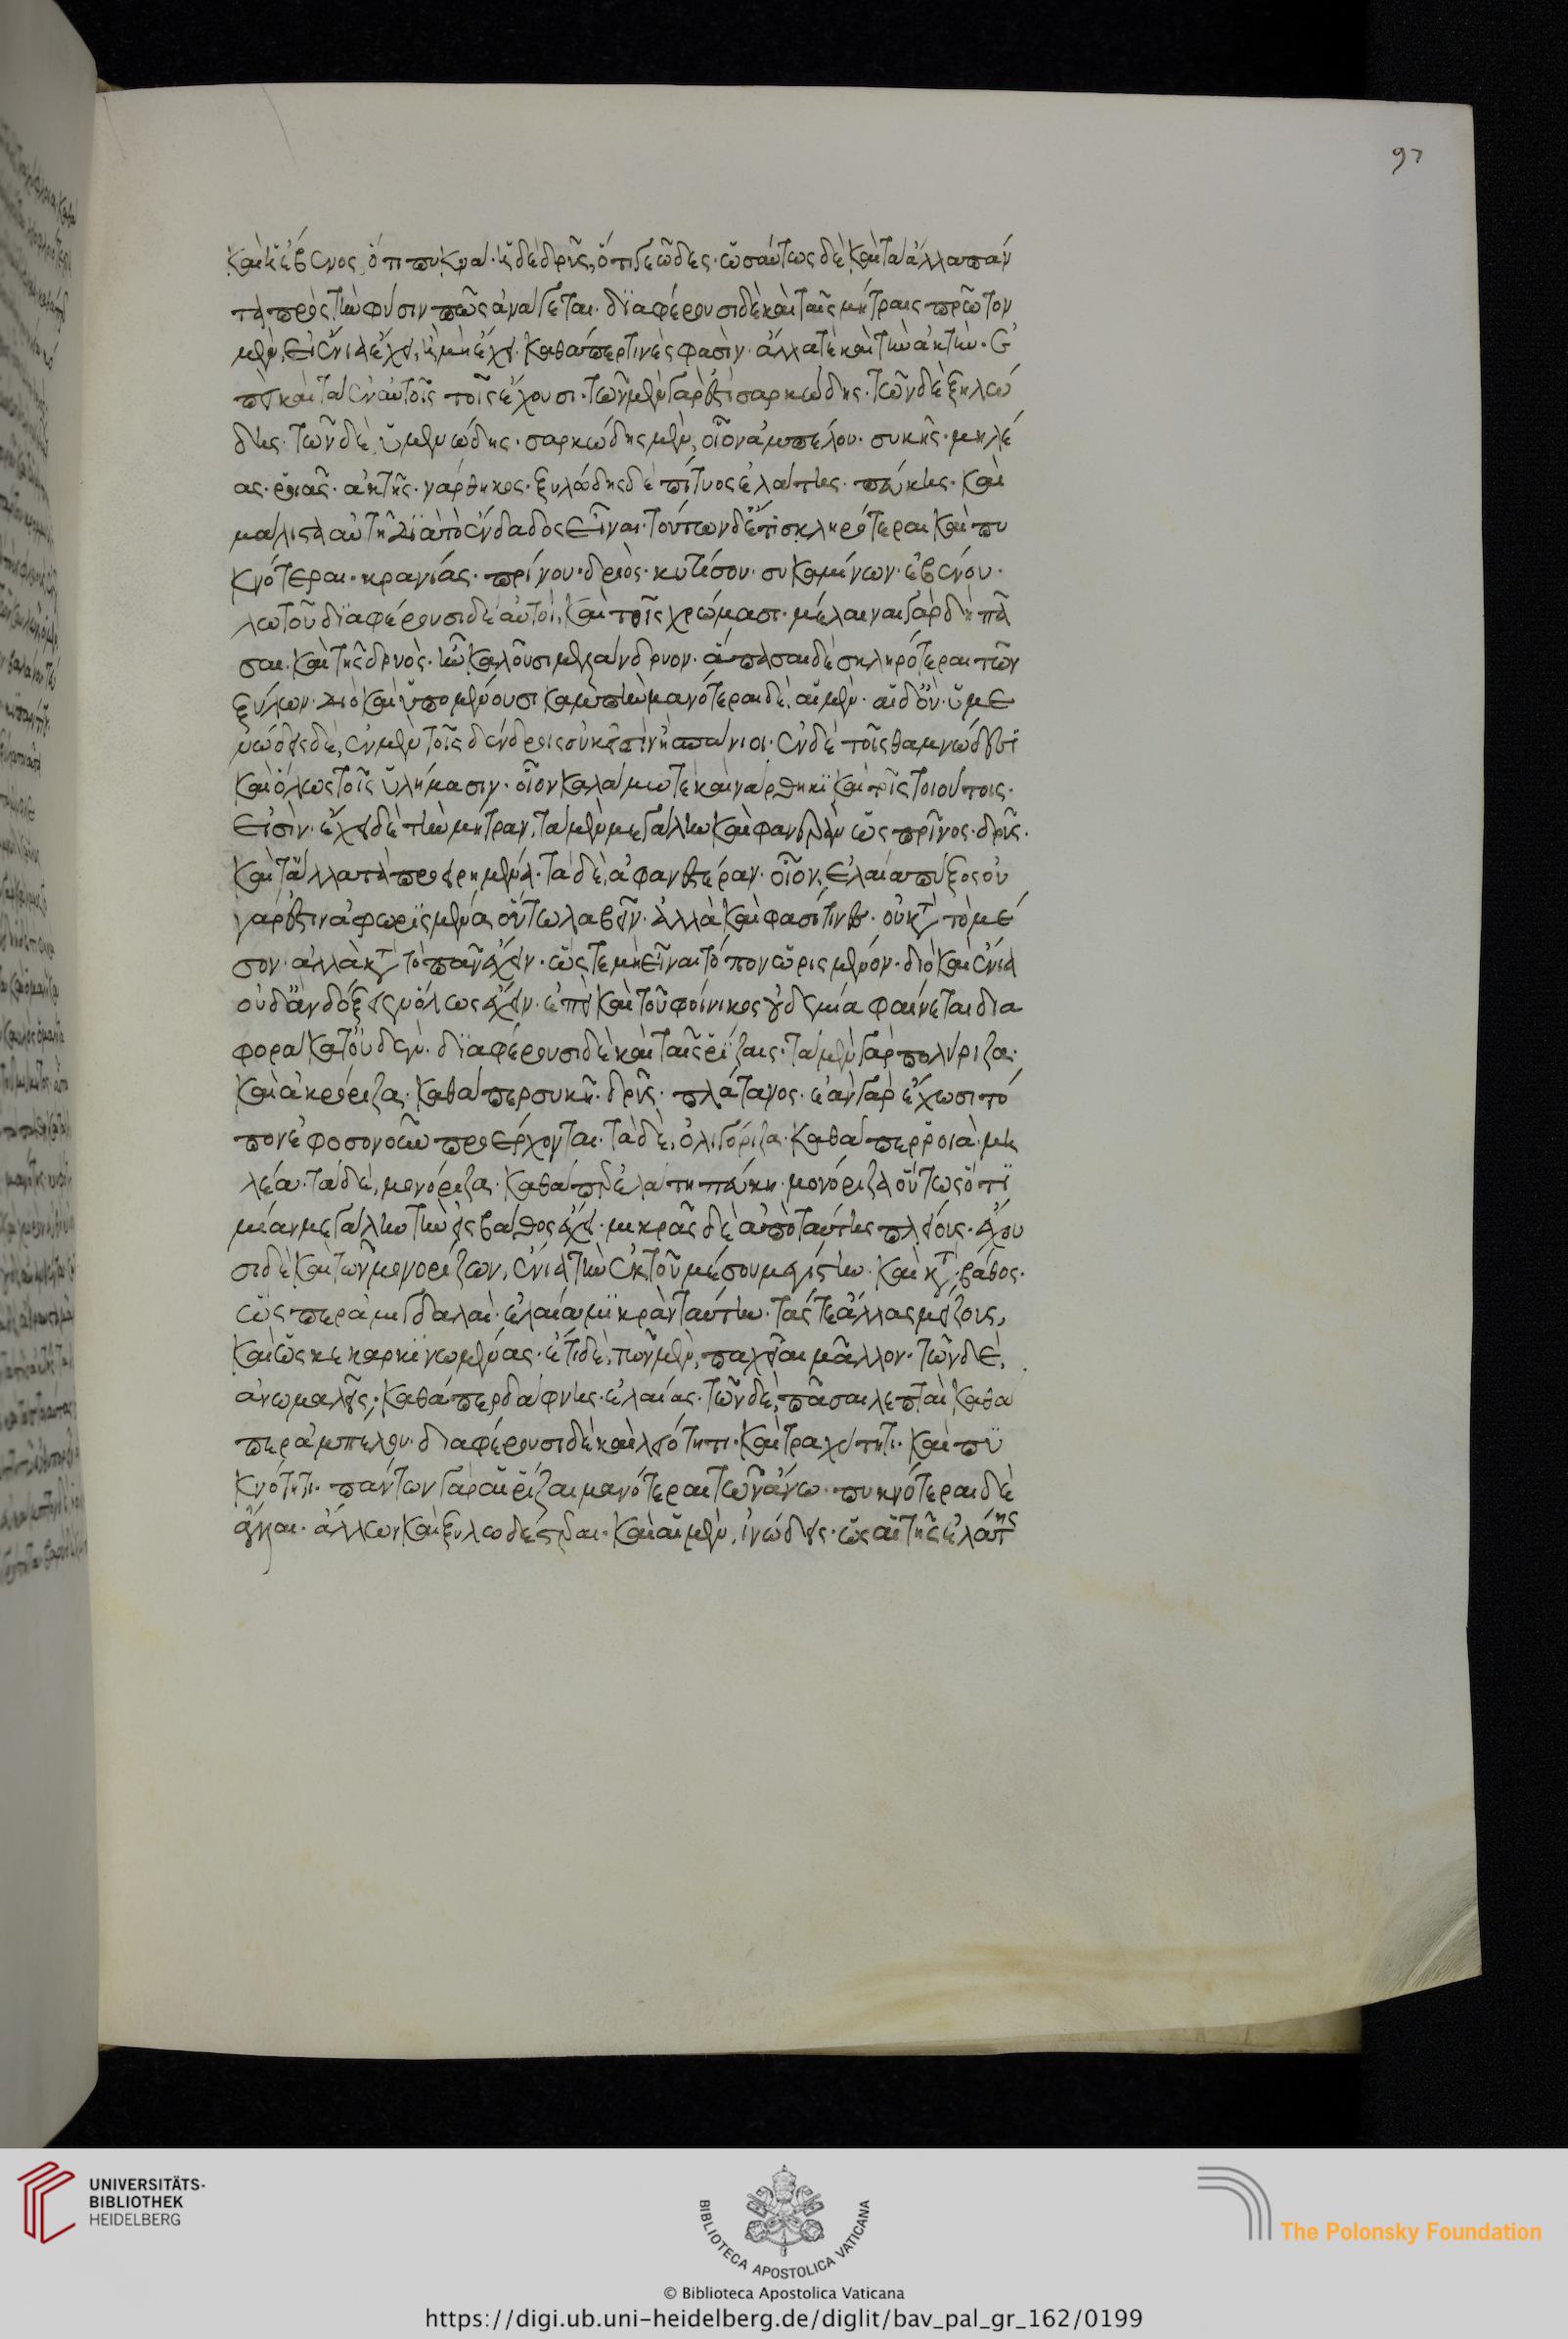 97
καὶ ἡ ἔβενος ὅτι πυκνά· ἡ δὲ δρῦς, ὅτι γεῶδες· ὡσαύτως δὲ καὶ τὰ ἄλλα πάν
τα πρὸς τὴν φύσιν πῶς ἀνάγεται· διαφέρουσι δὲ καὶ ταῖς μήτραις πρῶτον
μὲν, εἰ ἔνια ἔχει, ἢ μὴ ἔχει· καθάπερ τινές φασὶν· ἄλλα τὲ καὶ τὴν ἀκτὴν· ἔ
πει καὶ τὰ ἐν αὐτοῖς τοῖς ἔχουσι· τῶν μὲν γάρ ἐστὶ σαρκώδης· τῶν δὲ ξηλώ
δης· τῶν δὲ ὑμενώδης· σαρκώδης μὲν, οἷον ἀμπέλου· συκῆς· μηλέ
ας· ροιᾶς· ἀκτῆς· νάρθηκος· ξυλώδης δὲ πίτυος ἐλάτης· πεύκης· καὶ
μάλιστα αὐτὴ διὰ τὸ ἔνδαδος εἶναι· τούτων δ' ἔτι σκληρότεραι καὶ πυ
κνότεραι· κρανίας· πρίνου· δρυὸς· κυτίσου· συκαμίνων· ἐβένου·
λωτοῦ διαφέρουσι δὲ αὐτοὶ, καὶ τοῖς χρώμασι· μέλαιναι γὰρ δὴ πᾶ
σαι· καὶ τῆς δρυὸς· ἣν καλοῦσι μελάνδρυον· ἅπασαι δὲ σκληρότεραι τῶν
ξύλων· διὸ καὶ ὑπομένουσι καμπτὴν μανότεραι δὲ, αἱ μὲν· αἱ δ' ὂν· ὑμε
νώδεις δὲ, ἐν μὲν τοῖς δένδροις οὐκ ἐστὶν ἢ σπάνιοι· ἐν δὲ τοῖς θαμνώδεσι
καὶ ὅλως τοῖς ὑλήμασιν· οἷον καλάμω τε καὶ νάρθηκι καὶ τοῖς τοιούτοις·
εἰσὶν· ἔχει δὲ τὴν μήτραν, τὰ μὲν μεγάλην καὶ φανερὰν ὡς πρῖνος· δρῦς·
καὶ τἄλλα τὰ προειρημένα· τὰ δὲ, ἀφανεστέραν· οἷον, ἐλαία πύξος οὐ
γάρ ἐστιν ἀφωρισμένα οὕτω λαβεῖν· ἀλλὰ καὶ φασί τινες· οὐ κατὰ τὸ μέ
σον· ἀλλὰ κατὰ τὸ πᾶν ἔχειν· ὥστε μὴ εἶναι τόπον ὡρισμένον· διὸ καὶ ἔνια
οὐδ' ἂν δόξειεν ὅλως ἔχειν· ἐπεὶ καὶ τοῦ φοίνικος οὐδεμία φαίνεται δια
φορὰ κατουδὲν· διαφέρουσι δὲ καὶ ταῖς ῥίζαις· τὰ μὲν γὰρ πολύριζα·
καὶ ἀκρόριζα· καθάπερ συκῆ· δρῦς· πλάτανος· ἐὰν γὰρ ἔχωσι τό
πον ἐφοσονοῦν προέρχονται· τὰ δὲ, ὀλιγόριζα· καθάπερ ῥοιὰ· μη
λέα· τὰ δὲ, μονόριζα· καθάπερ ἐλάτη πεύκη· μονόριζα οὕτως ὅτι
μίαν μεγάλην τὴν εἰς βάθος ἔχει· μικρᾶς δὲ ἀπὸ ταύτης πλείους· ἔχου
σι δὲ καὶ τῶν μονορίζων, ἔνια τὴν ἐκ τοῦ μέσου μεγίστην· καὶ κατὰ βάθος·
ὥσπερ ἀμυγδαλαῖ· ἐλαία μικρὰν ταύτην· τάς τε ἄλλας μείζους,
καὶ ὡς κεκαρκινωμένας· ἔτι δὲ, τῶν μὲν, παχεῖαι μᾶλλον· τῶν δὲ,
ἀνωμαλεῖς, καθάπερ δάφνης· ἐλαίας· τῶν δὲ, πᾶσαι λεπταὶ καθά
περ ἀμπέλου· διαφέρουσι δὲ καὶ λειότητι· καὶ τραχύτητι· καὶ πυ
κνότητι· πάντων γὰρ αἱ ῥίζαι μανότεραι τῶν ἄνω· πυκνότεραι δὲ
ἄλλαι· ἄλλων καὶ ξυλωδέστεραι· καὶ αἱ μὲν, ἰνώδεις· ὡς αἱ τῆς ἐλάτης
UNIVERSITÄTS-
BIBLIOTHEK
HEIDELBERG
BIBLIOTECA APOSTOLICA VATICANA
The Polonsky Foundation
© Biblioteca Apostolica Vaticana
https://digi.ub.uni-heidelberg.de/diglit/bav_pal_gr_162/0199